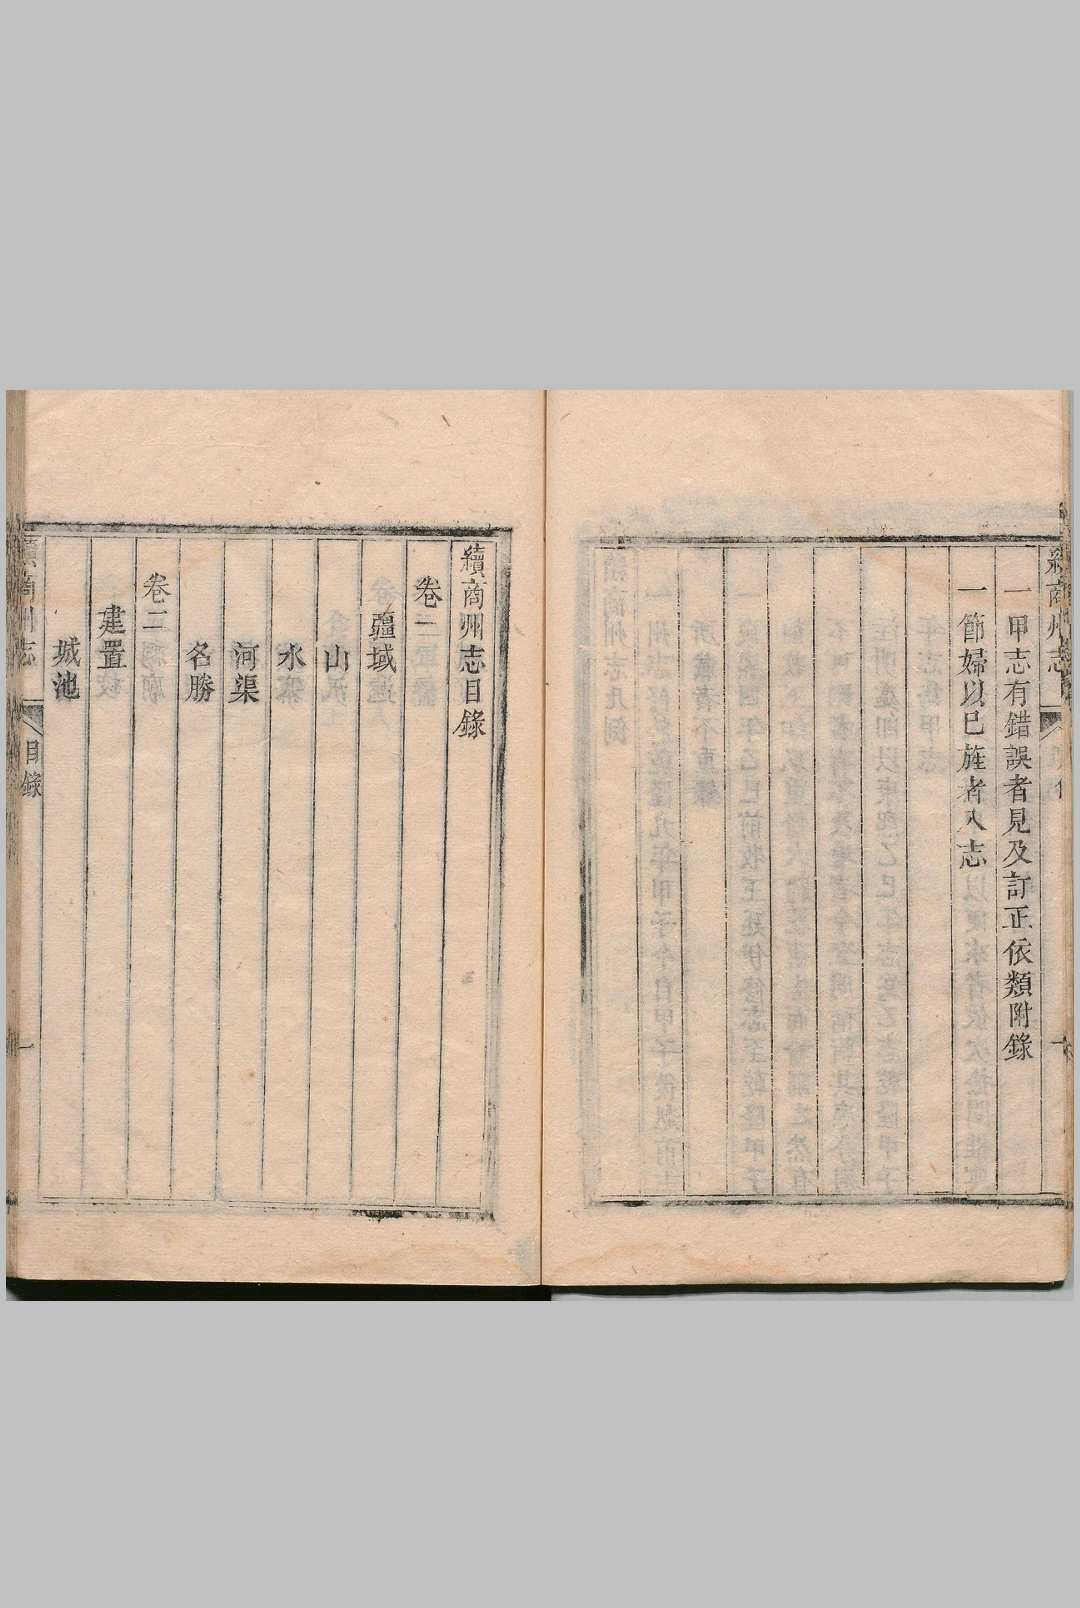 一甲志有錯誤者見及訂正依類附錄
一節婦以已旌者入志
續商州志目錄
卷一
疆域
山
水
河渠
名勝
卷二
建置
城池
續商州志
目錄
一